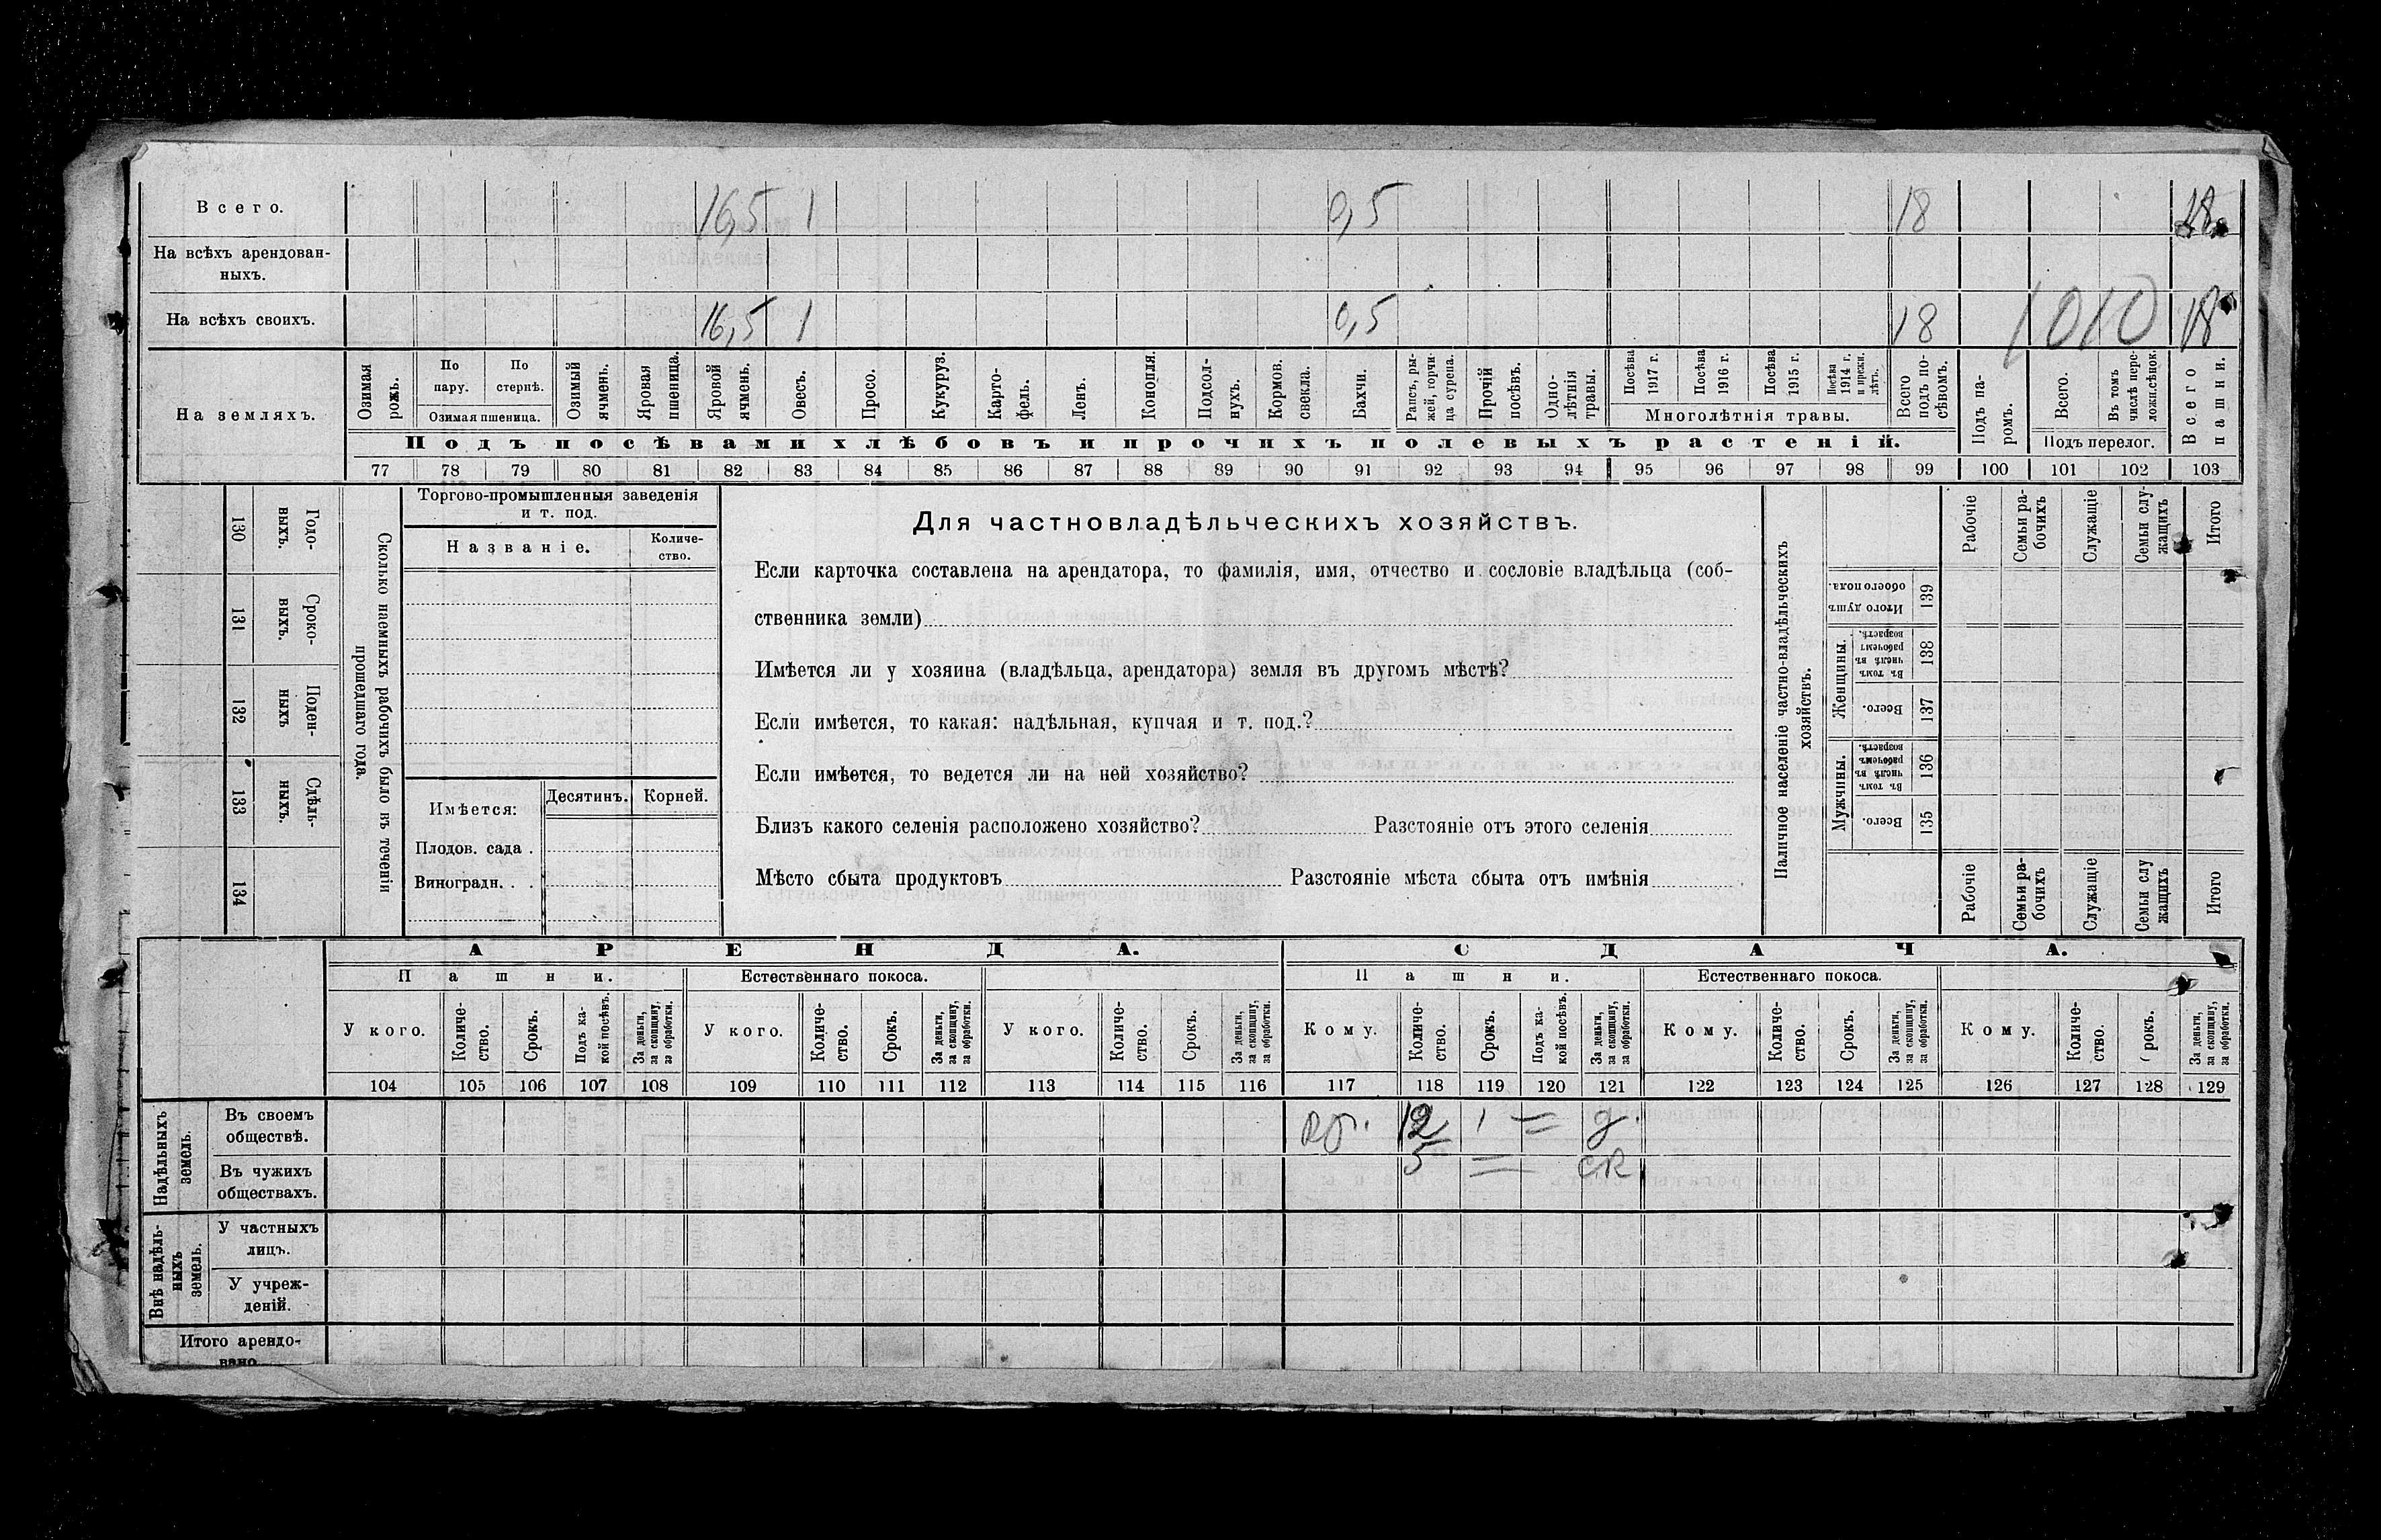 Всего. 16,5 1 0,5 18
На всѣхъ арендован-
ныхъ.
На всѣхъ своихъ. 16,5 1 0,5 18 10 10 18
На земляхъ.
Озимая рожь.
По пару.
По стернѣ.
Озимая пшеница.
Озимый ячмень.
Яровая пшеница.
Яровой ячмень.
Овесъ.
Просо.
Кукуруз.
Карто-
фель.
Ленъ.
Конопля.
Подсол-
нухъ.
Кормов. свекла.
Бахчи.
Рапсъ, ры-
жей, горчи-
ца сурепа.
Прочій посѣвъ.
Одно-
лѣтнія травы.
Посѣва 1917 г.
Посѣва 1916 г.
Посѣва 1915 г.
Посѣва 1914 г. и прежн. лѣтъ.
Многолѣтнія травы.
Всего подъ по-
сѣвомъ.
Подъ па-
ромъ.
Всего.
Въ томъ числѣ пере-
ложн.сѣнок.
Подъ перелог.
Всего пашни.
Подъ посѣвами хлѣбовъ и прочихъ полевыхъ растеній.
77 78 79 80 81 82 83 84 85 86 87 88 89 90 91 92 93 94 95 96 97 98 99 100 101 102 103
Сколько наемныхъ рабочихъ было въ теченіи
прошедшаго года.
Годо-
выхъ.
130
Сроко-
выхъ.
131
Поден-
ныхъ
132
Сдѣль-
ныхъ.
133
134
Торгово-промышленныя заведенія
и т. под.
Названіе.
Количе-
ство.
Имѣется:
Десятинъ.
Корней.
Плодов. сада .
Виноградн. . .
Для частновладѣльческихъ хозяйствъ.
Если карточка составлена на арендатора, то фамилія, имя, отчество и сословіе владѣльца (соб-
ственника земли)
Имѣется ли у хозяина (владѣльца, арендатора) земля въ другомъ мѣстѣ?
Если имѣется, то какая: надѣльная, купчая и т. под.?
Если имѣется, то ведется ли на ней хозяйство?
Близъ какого селенія расположено хозяйство? Разстояніе отъ этого селенія
Мѣсто сбыта продуктовъ Разстояніе мѣста сбыта отъ имѣнія
Наличное населеніе частно-владѣльческихъ
хозяйствъ.
Рабочіе
Семьи ра-
бочихъ
Служащіе
Семьи слу-
жащихъ
Итого
Итого душъ
обоего пола.
139
Женщины.
Въ томъ числѣ въ рабочемъ возрастѣ.
138
Всего.
137
Мужчины.
Въ томъ числѣ въ рабочемъ возрастѣ.
136
Всего.
135
Рабочіе
Семьи ра-
бочихъ
Служащіе
Семьи слу
жащихъ
Итого
АРЕНДА. СДАЧА.
Пашни. Естественнаго покоса. Пашни. Естественнаго покоса.
У кого.
Количе-
ство.
Срокъ.
Подъ ка-
кой посѣвъ.
За деньги,
за скопщину,
за обработки.
У кого.
Количе-
ство.
Срокъ.
За деньги,
за скопщину,
за обработки.
У кого.
Количе-
ство.
Срокъ.
За деньги,
за скопщину,
за обработки.
Кому.
Количе-
ство.
Срокъ.
Подъ ка-
кой посѣвъ.
За деньги,
за скопщину,
за обработки.
Кому.
Количе-
ство.
Срокъ.
За деньги,
за скопщину,
за обработки.
Кому.
Количе-
ство.
рокъ.
За деньги,
за скопщину,
за обработки.
104 105 106 107 108 109 110 111 112 113 114 115 116 117 118 119 120 121 122 123 124 125 126 127 128 129
Надѣльныхъ
земель.
Въ своемъ
обществѣ.
12 1 = д.
Въ чужихъ
обществахъ.
5 = ск
Внѣ надѣль-
ныхъ
земель.
У частныхъ
лицъ.
У учреж-
деній.
Итого арендо-
вано